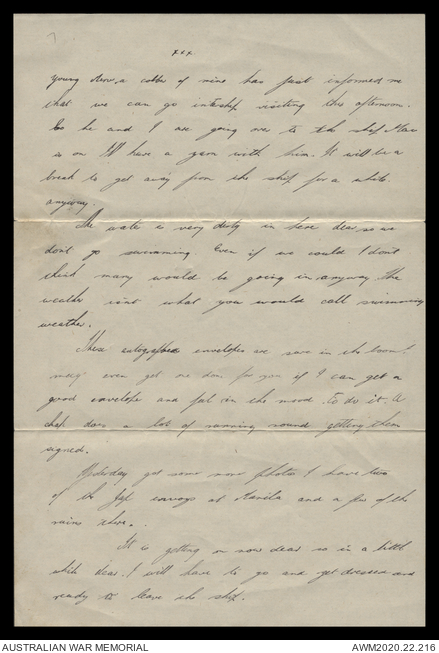 7
xxx
young Stew, a cobber of mine has just informed me
that we can go intership visiting this afternoon.
So he and I are going over to the ship Max
is on I'll have a yarn with him. It will be a
break to get away from the ship for a while
anyway.
The water is very dirty in here dear so we
don't go swimming. Even if we could I don't
think many would be going in anyway. The
weather isn't what you would call swimming
weather.
These autographed envelopes are sure in the boom.
may even get one done for you if I can get a
good envelope and feel in the mood to do it. A
chap does a lot of running round getting them
signed.
Yesterday got some more photos I have two
of the Jap envoys at Manila and a few of the
ruins there.
It is getting on now dear so in a little
while dear, I will have to go and get dressed and
ready to leave the ship.
AUSTRALIAN WAR MEMORIAL
AWM2020.22.216